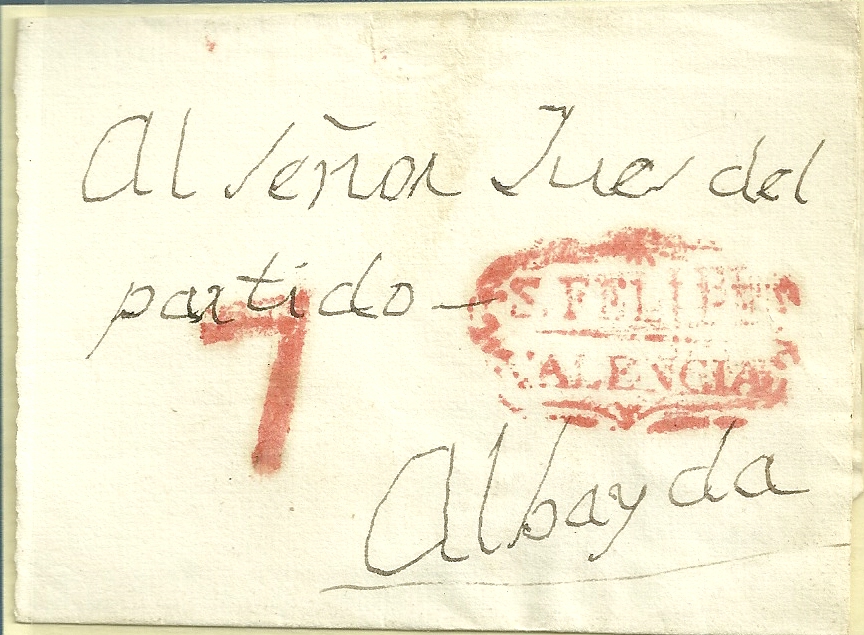 Al señor Jues del
partido —
S. FELIPE
VALENCIA
7
Albayda